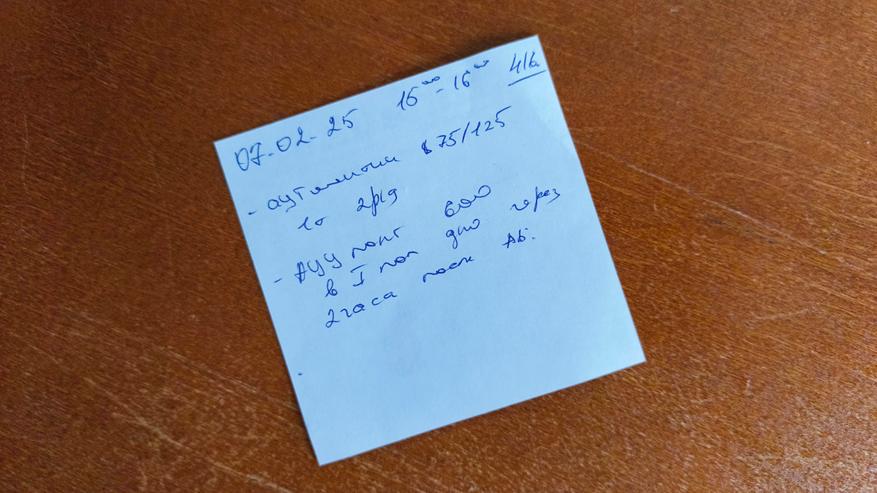 07.02.25 15⁰⁰-16⁰⁰ 416
- аугментин 875/125
1т 2р/д
- АЦЦ лонг 600
в I пол дня через
2 часа после АБ.